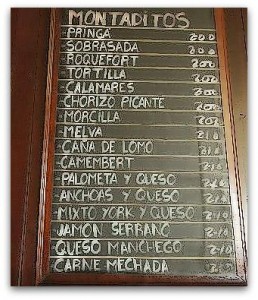 MONTADITOS
-PRINGÁ 200
-SOBRASADA 200
-ROQUEFORT 200
-TORTILLA 200
-CALAMARES 200
-CHORIZO PICANTE 200
-MORCILLA 200
-MELVA 210
-CAÑA DE LOMO 210
-CAMEMBERT 210
-PALOMETA Y QUESO 210
-ANCHOAS Y QUESO 210
-MIXTO YORK Y QUESO 210
-JAMON SERRANO 210
-QUESO MANCHEGO 210
-CARNE MECHADA 210